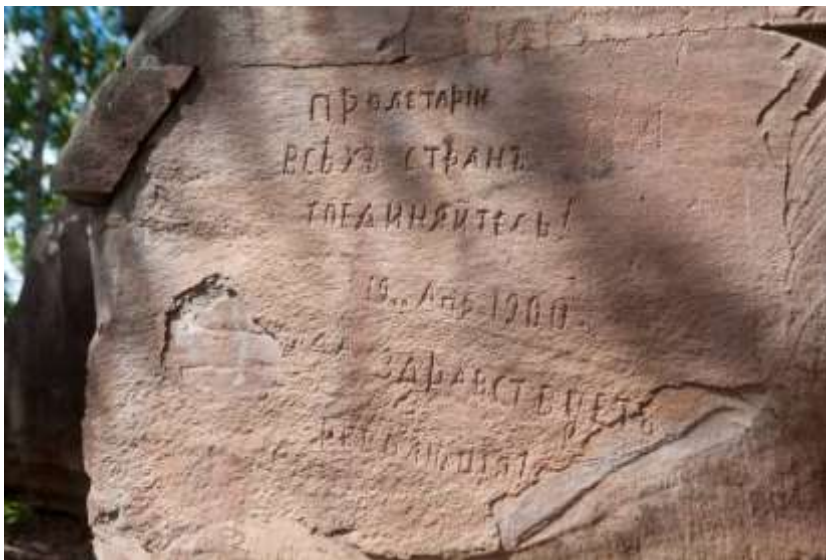 ПРОЛЕТАРІИ
ВСѢХЪ СТРАНЪ
СОЕДИНЯЙТЕСЬ!
19.. Апр. 1900.
ДА ЗДРАВСТВУЕТЪ
РЕВОЛЮЦІЯ!